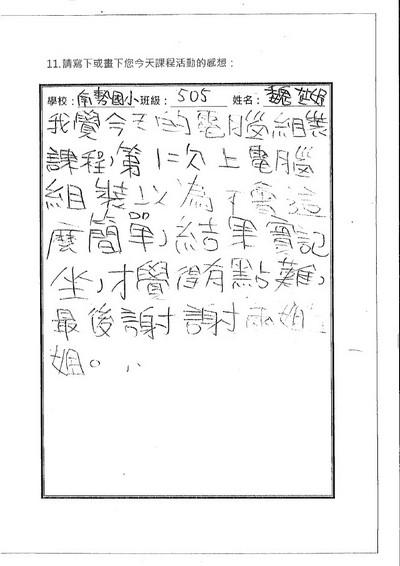 11.請寫下或畫下您今天課程活動的感想：
學校：南勢國小班級：505 姓名：魏
我覺今天的電腦組裝
課程，第1次上電腦
組裝以為不會這
麼簡單，結果實記
坐，才覺得有點難，
最後謝謝雨姐
姐。